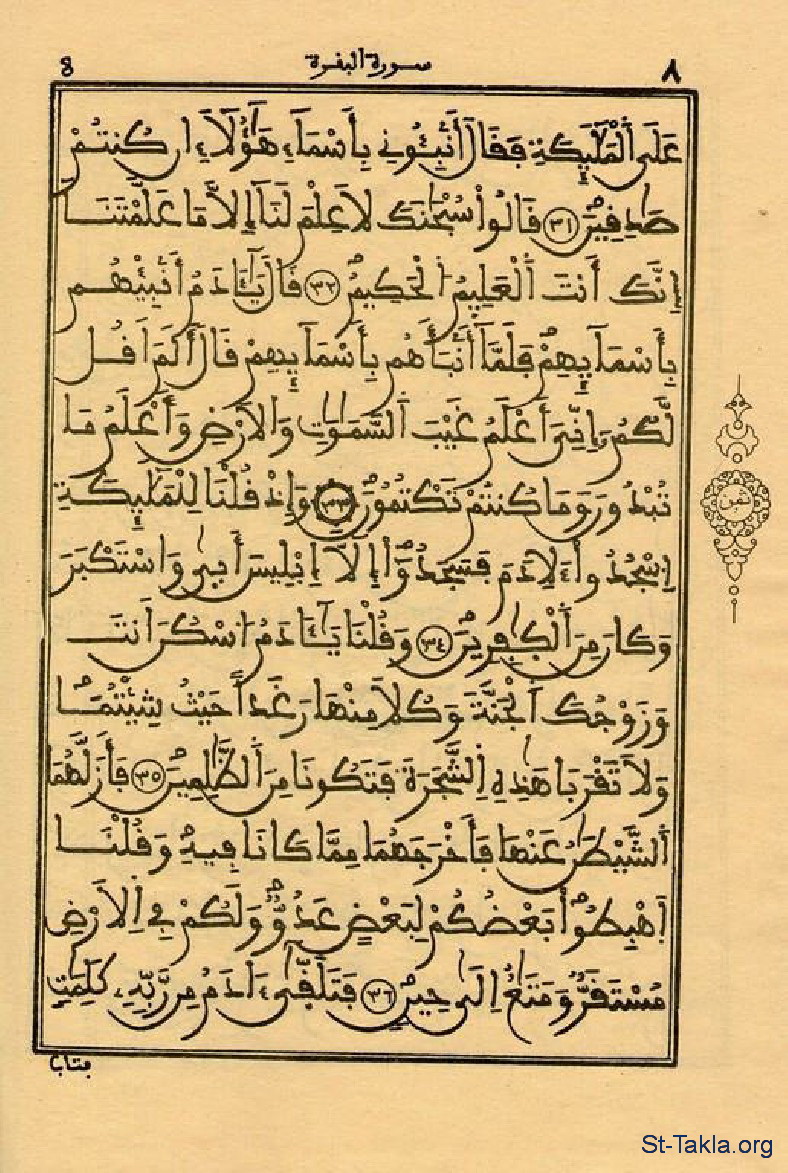 ٨ سورة البقرة 8
عَلَى اَلْمَلَٰٓئِكَةِ فَقَالَ أَنۢبِـُٔونِے بِأَسْمَآءِ هَٰٓؤُلَآءِ ان كُنتُمْ
صَٰدِقِينَ ٣١ قَالُواْ سُبْحَٰنَكَ لَا عِلْمَ لَنَآ إِلَّا مَا عَلَّمْتَنَآ
إِنَّكَ أَنتَ اَلْعَلِيمُ اُلْحَكِيمُ ٣٢ قَالَ يَٰٓـَٔادَمُ أَنۢبِئْهُم
بِأَسْمَآئِهِمْ فَلَمَّآ أَنۢبَأَهُم بِأَسْمَآئِهِمْ قَالَ أَلَمَ اَقُل
لَّكُمُۥٓ إِنِّيَ أَعْلَمُ غَيْبَ اَلسَّمَٰوَٰتِ وَالَارْضِ وَأَعْلَمُ مَا
تُبْدُونَ وَمَا كُنتُمْ تَكْتُمُونَ ٣٣ وَإِذْ قُلْنَا لِلْمَلَٰٓئِكَةِ
اِسْجُدُواْ لِأٓدَمَ فَسَجَدُوٓاْ إِلَّآ إِبْلِيسَ أَبۭيٰ وَاسْتَكْبَرَ
وَكَانَ مِنَ اَلْكٰ۪فِرِينَ ٣٤ وَقُلْنَا يَٰٓـَٔادَمُ اُسْكُنَ اَنتَ
وَزَوْجُكَ اَلْجَنَّةَ وَكُلَا مِنْهَا رَغَداً حَيْثُ شِئْتُمَا
وَلَا تَقْرَبَا هَٰذِهِ اِلشَّجَرَةَ فَتَكُونَا مِنَ اَلظَّٰلِمِينَ ٣٥ فَأَزَلَّهُمَا
اَلشَّيْطَٰنُ عَنْهَا فَأَخْرَجَهُمَا مِمَّا كَانَا فِيهِ وَقُلْنَا
اَهْبِطُواْ بَعْضُكُمْ لِبَعْضٍ عَدُوٌّ وَلَكُمْ فِے اِلَارْضِ
مُسْتَقَرٌّ وَمَتَٰعٌ اِلَىٰ حِينٍ ٣٦ فَتَلَقّ۪ىٰٓ ءَادَمُ مِن رَّبِّهِۦ كَلِمَٰتٍ
فتاب
ثمن
St-Takla.org